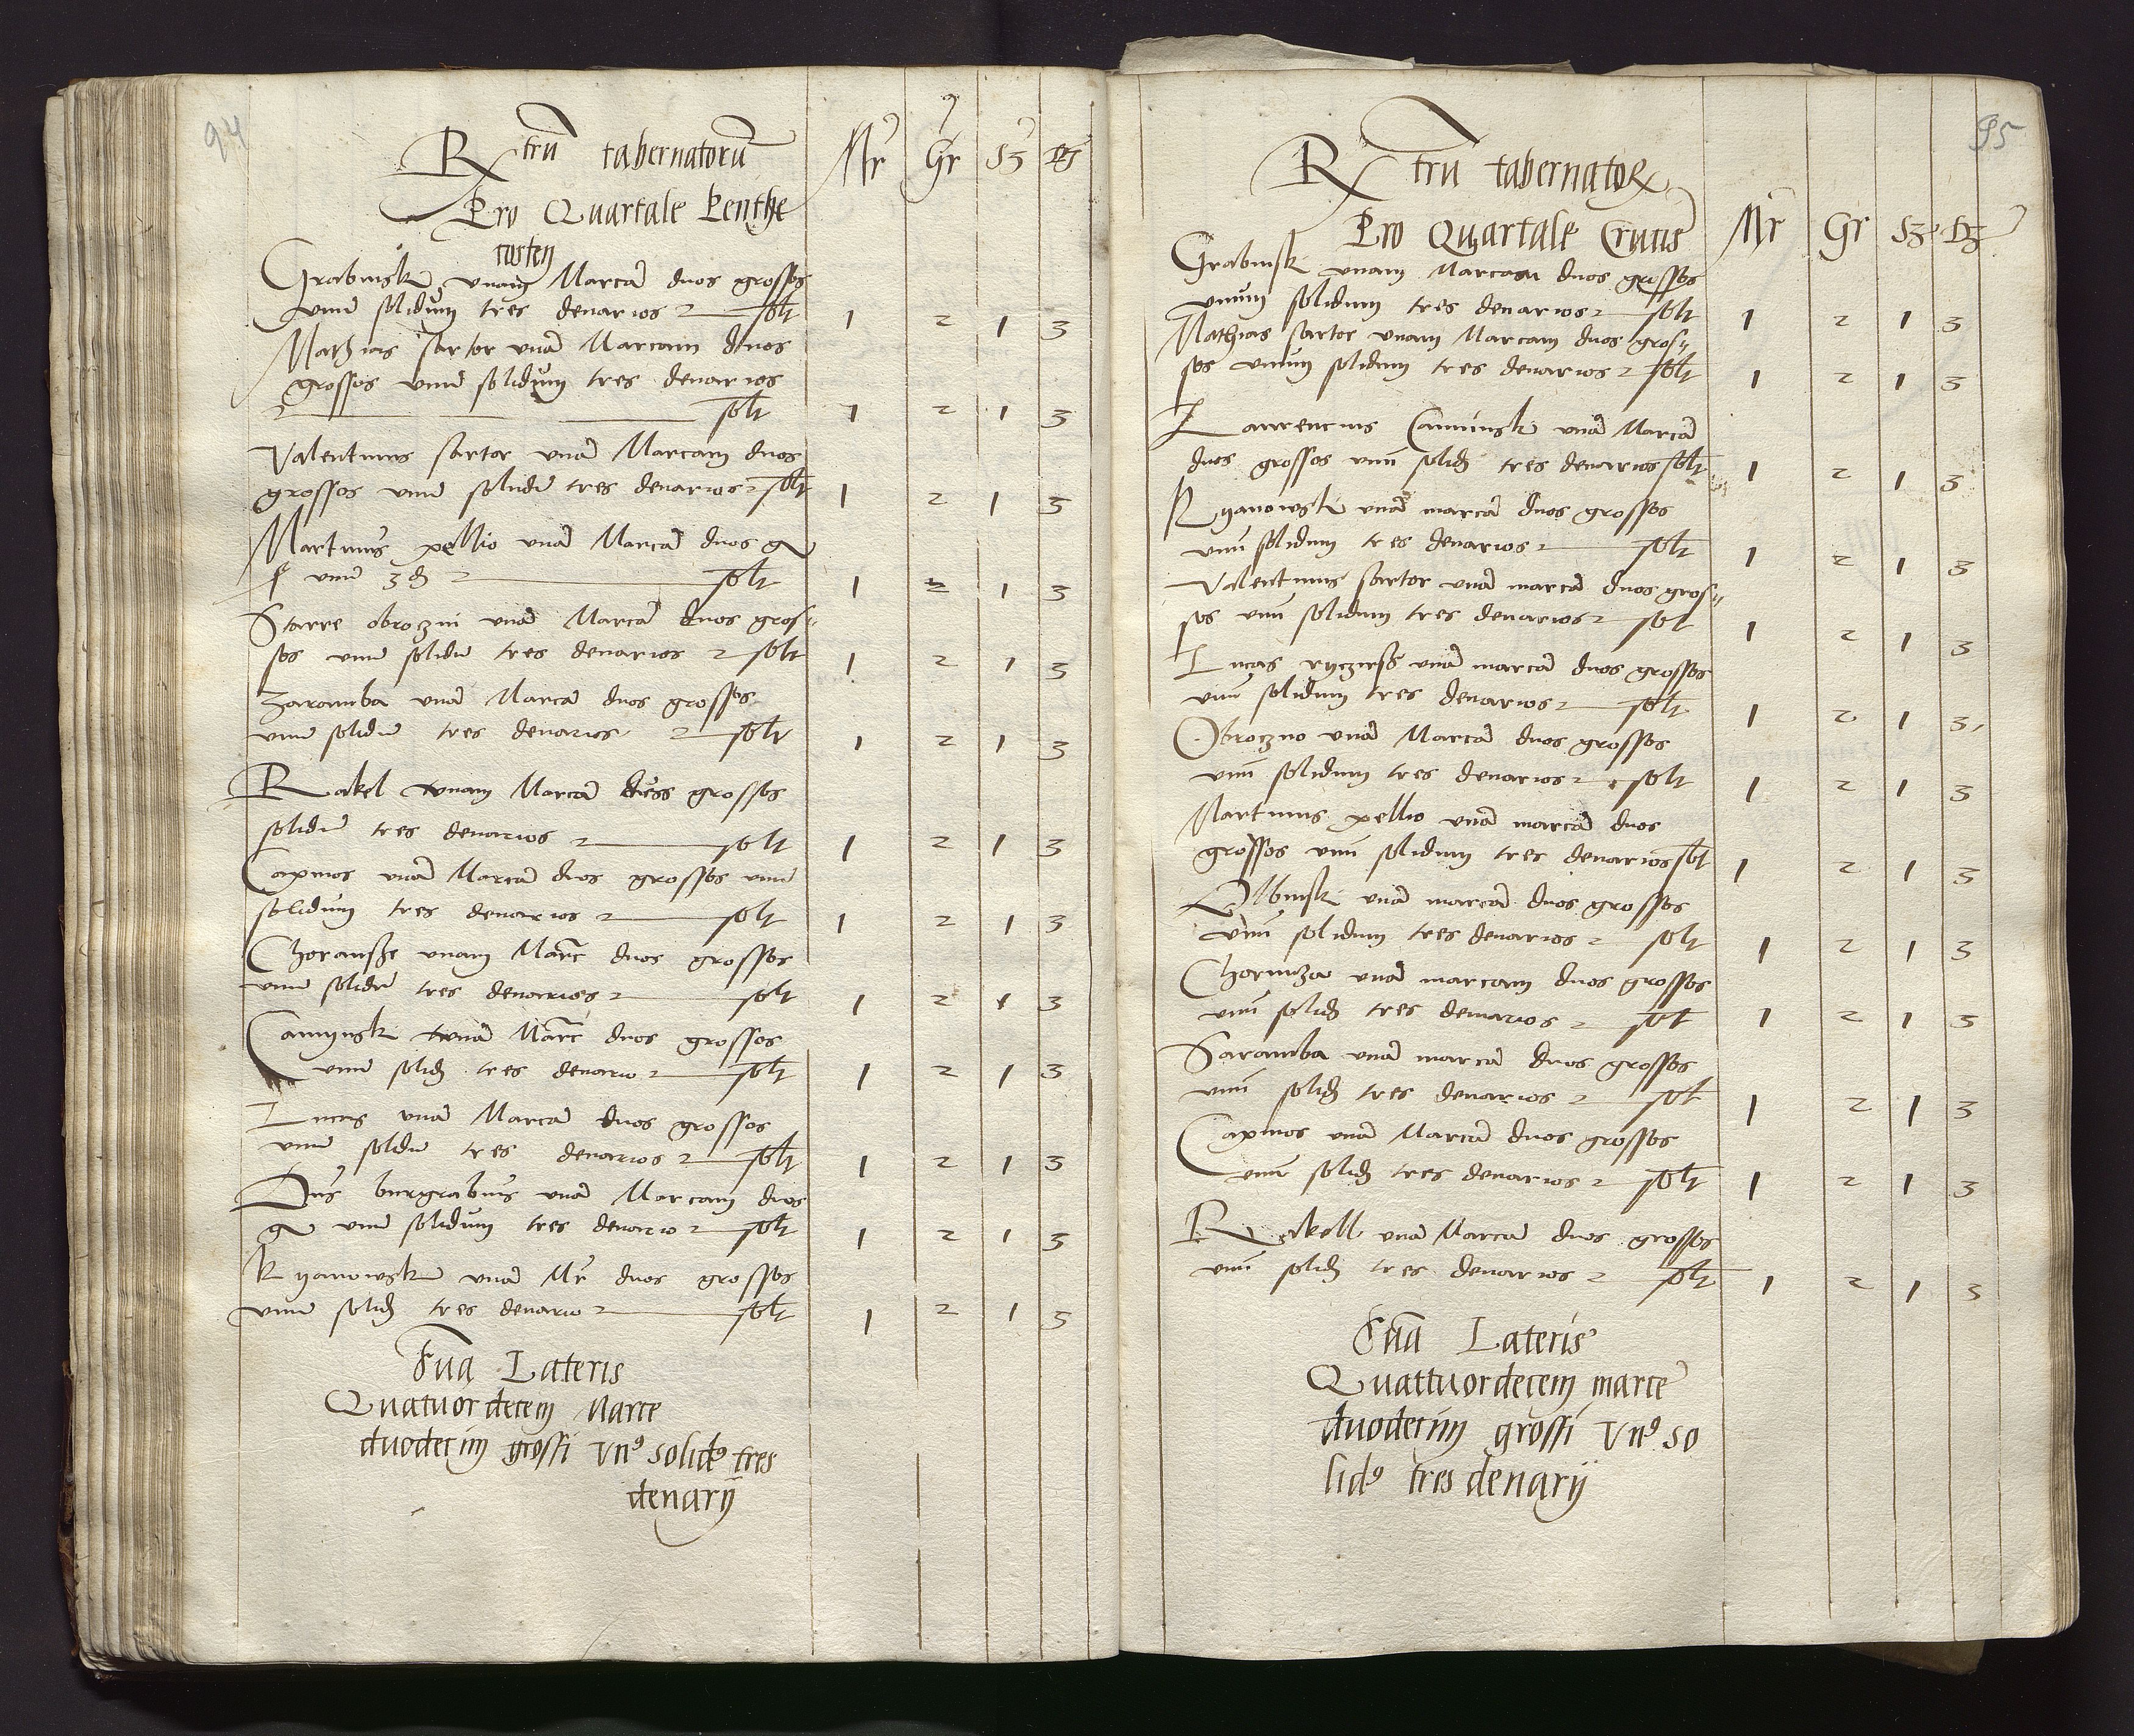 94
Rx trũ tabernatorũ Mr Gr Sʒ dʒ
Pro Quartale Penthe
costen
Grabinski unam Marcã duos grossos
unũ solidum tres denarios solt 1 2 1 3
Mathias sartor unã Marcam duos
grossos unũ solidum tres denarios
solt 1 2 1 3
Valentinus sartor unã Marcam duos
grossos unũ solidũ tres denarios solt 1 2 1 3
Martinus pellio unã Marcã duos gr
unũ 3 đ solt 1 2 1 3
Starre obroczni unã Marcã duos gros
sos unũ solidũ tres denarios solt 1 2 1 3
Zaramba unã Marcã duos grossos
unũ solidũ tres denarios solt 1 2 1 3
Rakel unam Marcã duos grossos
solidũ tres denarios solt 1 2 1 3
Capinos unã Marcã duos grossos unũ
solidum tres denarios solt 1 2 1 3
unam Marc duos grossos
unũ solidũ tres denarios solt 1 2 1 3
Camynski unã Marc duos grossos
unũ solid tres denario solt 1 2 1 3
Lucas unã Marcã duos grossos
unũ solidũ tres denarios solt 1 2 1 3
Dns burgrabius unã Marcam duos
gr unũ solidum tres denario solt 1 2 1 3
Kyanowski unã Mr duos grossos
unũ solid tres denario solt 1 2 1 3
Sũa Lateris
Quatuordecem Marce
duodecim grossi vnꝰ solidꝰ tres
denarij
95
Rx trũ tabernatoꝝ
Pro Quartale Crucis Mr Gr Sʒ dʒ
Grabinski unam Marcam duos grossos
unum solidum tres denarios solt 1 2 1 3
Mathias sartor unam Marcam duos gros
sos unum solidum tres denarios solt 1 2 1 3
Laurencius Caminski unã Marcã
duos grossos unũ solid tres denarios solt 1 2 1 3
Kyanowski unã marcã duos grossos
unũ solidum tres denarios solt 1 2 1 3
Valentinus sartor unã marcã duos gros
sos unũ solidum tres denarios solt 1 2 1 3
Lucas unã marcã duos grossos
unũ solidum tres denarios solt 1 2 1 3
Obroczno unã Marcã duos grossos
unũ solidum tres denarios solt 1 2 1 3
Martinus pellio unã marcã duos
grossos unũ solidum tres denarios solt 1 2 1 3
Olbinski unã marcã duos grossos
unũ solidum tres denarios solt 1 2 1 3
unã marcam duos grossos
unũ solid tres denarios solt 1 2 1 3
Saramba unã marcã duos grossos
unũ solid tres denarios solt 1 2 1 3
Capinos unã Marcã duos grossos
unũ solid tres denarios solt 1 2 1 3
Rakell unã Marcã duos grossos
unũ solid tres denarios solt 1 2 1 3
Sũa Lateris
Quattuordecem marce
duodecim grossi vnꝰ so
lidꝰ tres denarij